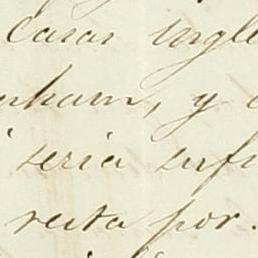 casas ingle
nham, y
seria sufi
resta por.